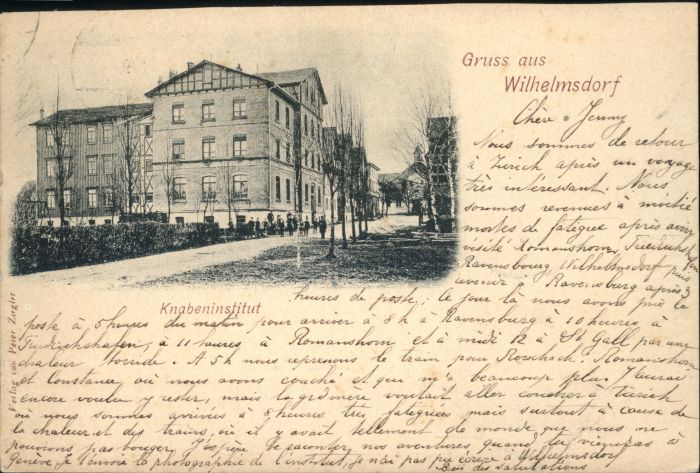 Gruss aus
Wilhelmsdorf
Chère Jenny
Nous sommes de retour
à Zürich après un voyage
très intéressant. Nous
sommes revenues à moitié
mortes de fatigue après avoir
visité Romanshorn, Friedrichshafen
Ravensbourg Wilhelmsdorf puis
revenir à Ravensburg après 3
heures de poste; le jour là nous avons pris la
poste à 5 heures du matin pour arriver à 8 h à Ravensburg à 10 heures à
Friedrichshafen, à 11 heures à Romanshorn et à midi 12 à St Gall par une
chaleur torride. A 5 h nous reprenons le train pour Rorschach, Romanshorn
et Constance, où nous avons couché et qui m'a beaucoup plu. J'aurai
encore voulu y rester, mais la gd mère voulait aller coucher à Zürich
où nous sommes arrivées à 8 heures très fatiguées mais surtout à cause de
la chaleur et des trains, où il y avait tellement de monde que nous ne
pouvions pas bouger. J'espère te raconter nos aventures quand tu viendras à
Genève, je t'envoie la photographie de l'institut, je n'ai pas pu écrire à Wilhelmsdorf
bien des salutations
Knabeninstitut
Verlag von Peter Ziegler